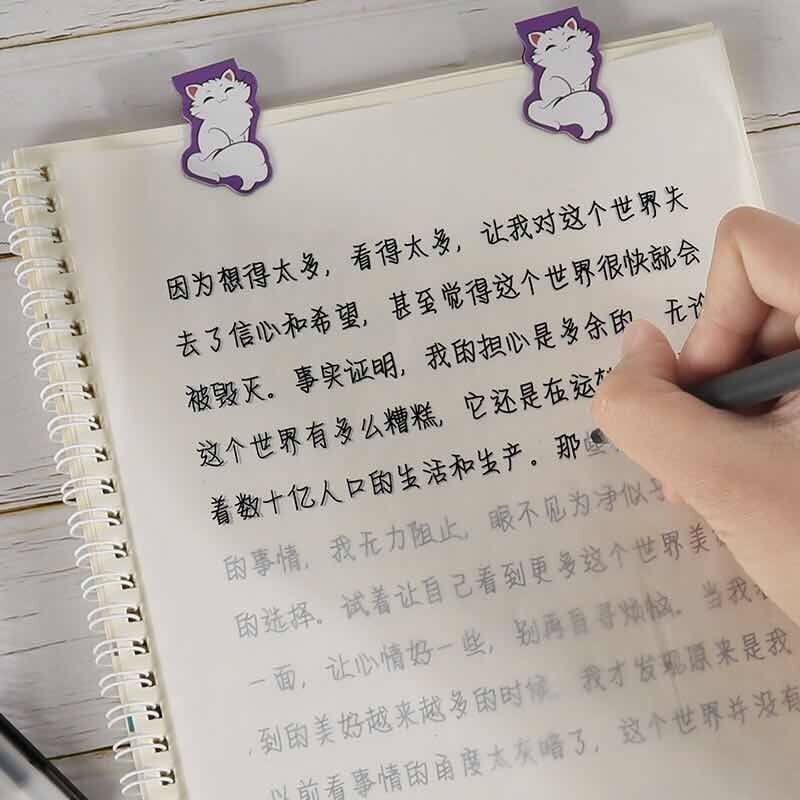 因为想得太多，看得太多，让我对这个世界失
去了信心和希望，甚至觉得这个世界很快就会
被毁灭。事实证明，我的担心是多余的。无论
这个世界有多么糟糕，它还是在运
着数十亿人口的生活和生产。那些
的事情，我无力阻止，眼不见为净似乎
的选择。试着让自己看到更多这个世界美
一面，让心情好一些，别再自寻烦恼。当我
到的美好越来越多的时候，我才发现原来是我
以前看事情的角度太灰暗了，这个世界并没有